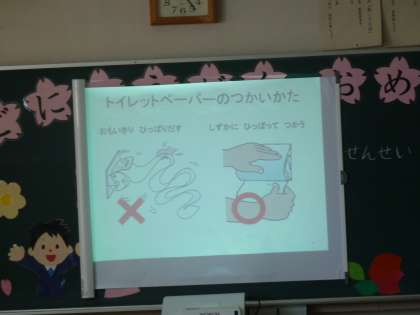 どに
おめ
トイレットペーパーのつかいかた
おもいきり ひっぱりだす
しずかに ひっぱって つかう
せんせい